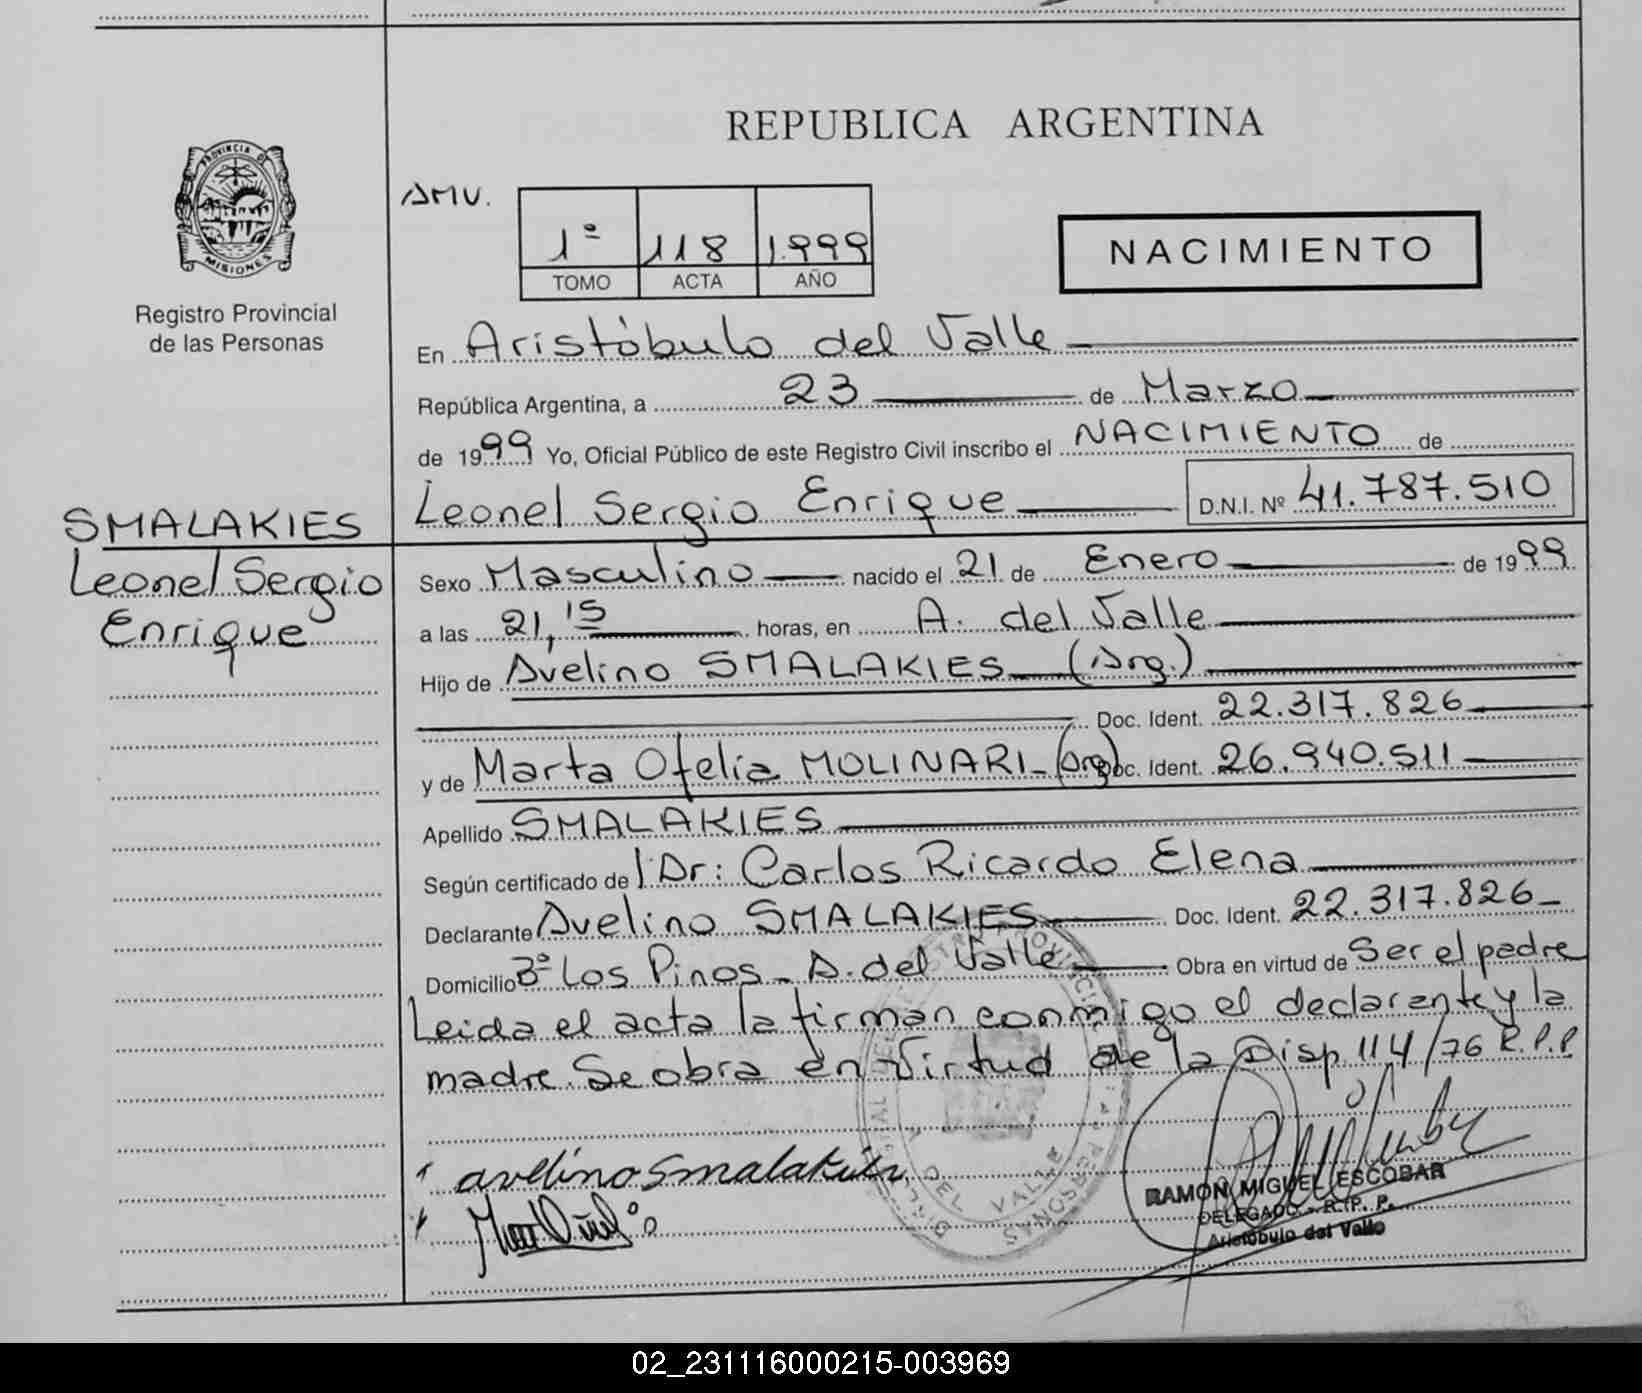 REPUBLICA ARGENTINA
PROVINCIA DE
MISIONES
Registro Provincial
de las Personas
AMV.
1º 118 1.999
TOMO ACTA AÑO
NACIMIENTO
En Aristóbulo del Valle
República Argentina, a 23 de Marzo
de 1999 Yo, Oficial Público de este Registro Civil inscribo el NACIMIENTO de
Leonel Sergio Enrique D.N.I. Nº 41.787.510
SMALAKIES
Leonel Sergio
Enrique
Sexo Masculino nacido el 21 de Enero de 1999
a las 21,15 horas, en A. del Valle
Hijo de Avelino SMALAKIES (Arg.)
Doc. Ident. 22.317.826
y de Marta Ofelia MOLINARI - (Arg) Doc. Ident. 26.940.511
Apellido SMALAKIES
Según certificado del Dr: Carlos Ricardo Elena
Declarante Avelino SMALAKIES Doc. Ident. 22.317.826
Domicilio Bº Los Pinos - A. del Valle Obra en virtud de Ser el padre
Leida el acta la firman conmigo el declarante y la
madre. Se obra en Virtud de la Disp. 114/76 R.P.P
avelino Smalakies
DEL VALLE
PERSONAS
RAMON MIGUEL ESCOBAR
DELEGADO - R. P. P.
Aristóbulo del Valle
02_231116000215-003969